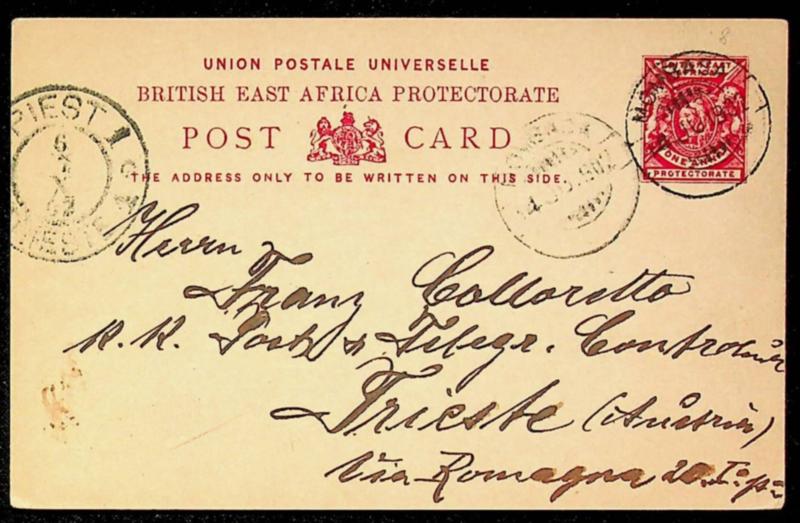 UNION POSTALE UNIVERSELLE
BRITISH EAST AFRICA PROTECTORATE
POST CARD
THE ADDRESS ONLY TO BE WRITTEN ON THIS SIDE.
MOMBASA
ONE ANNA
PROTECTORATE
MOMBASA
TRIEST 1
TRIESTE 1
Herrn
Franz Colloretto
K. K. Post & Telegr. Controleur
Trieste (Austria)
Via Romagna 20 I.º p.º